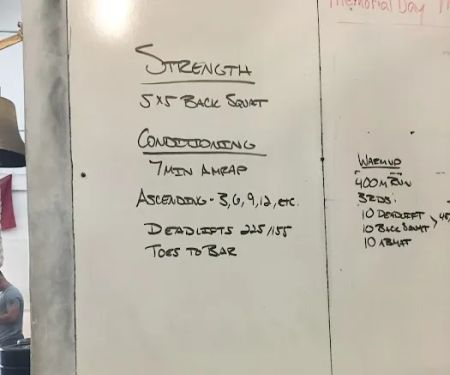 Memorial Day
STRENGTH
5x5 BACK SQUAT
CONDITIONING
7 MIN AMRAP
ASCENDING - 3,6,9,12, ETC.
DEADLIFTS 225/155
TOES TO BAR
WARMUP
400M RUN
3RDS:
10 DEADLIFT
10 BACK SQUAT
10 ABMAT